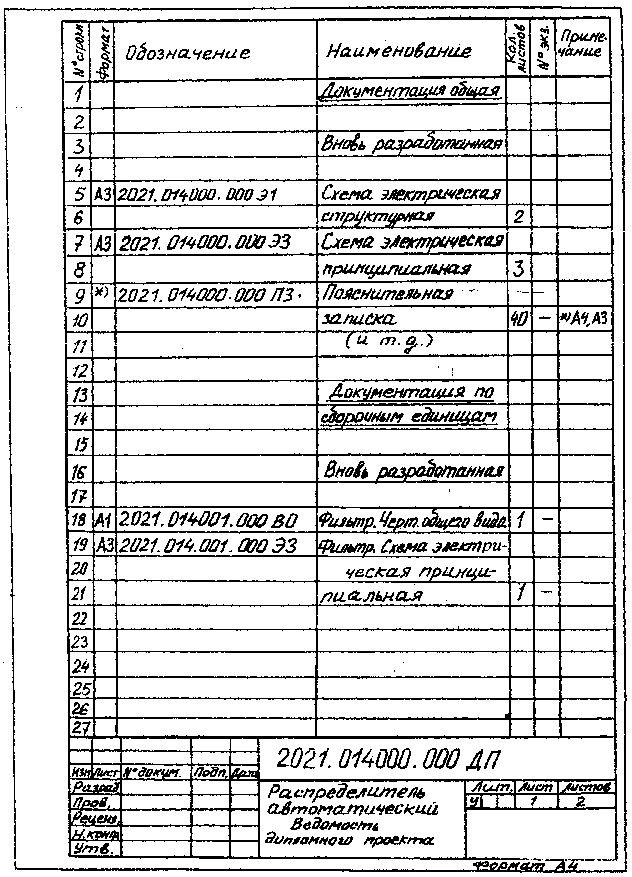 № строк Формат Обозначение Наименование Кол. листов № экз. Приме-чание
1 Документация общая
2
3 Вновь разработанная
4
5 А3 2021.014000.000 Э1 Схема электрическая
6 структурная 2
7 А3 2021.014000.000 ЭЗ Схема электрическая
8 принципиальная 3
9 *) 2021.014000.000 ПЗ. Пояснительная
10 записка 40 – *) А4, А3
11 (и т.д.)
12
13 Документация по
14 сборочным единицам
15
16 Вновь разработанная
17
18 А1 2021.014001.000 ВО Фильтр. Черт. общего вида 1 –
19 А3 2021.014.001.000 ЭЗ Фильтр. Схема электри-
20 ческая принци-
21 пиальная 1 –
22
23
24
25
26
27
2021.014000.000 ДП
Изм Лист № докум. Подп. Дата
Разраб.
Пров.
Реценз.
Н.контр.
Утв.
Распределитель
автоматический
Ведомость
дипломного проекта
Лит. Лист Листов
У 1 2
Формат А4